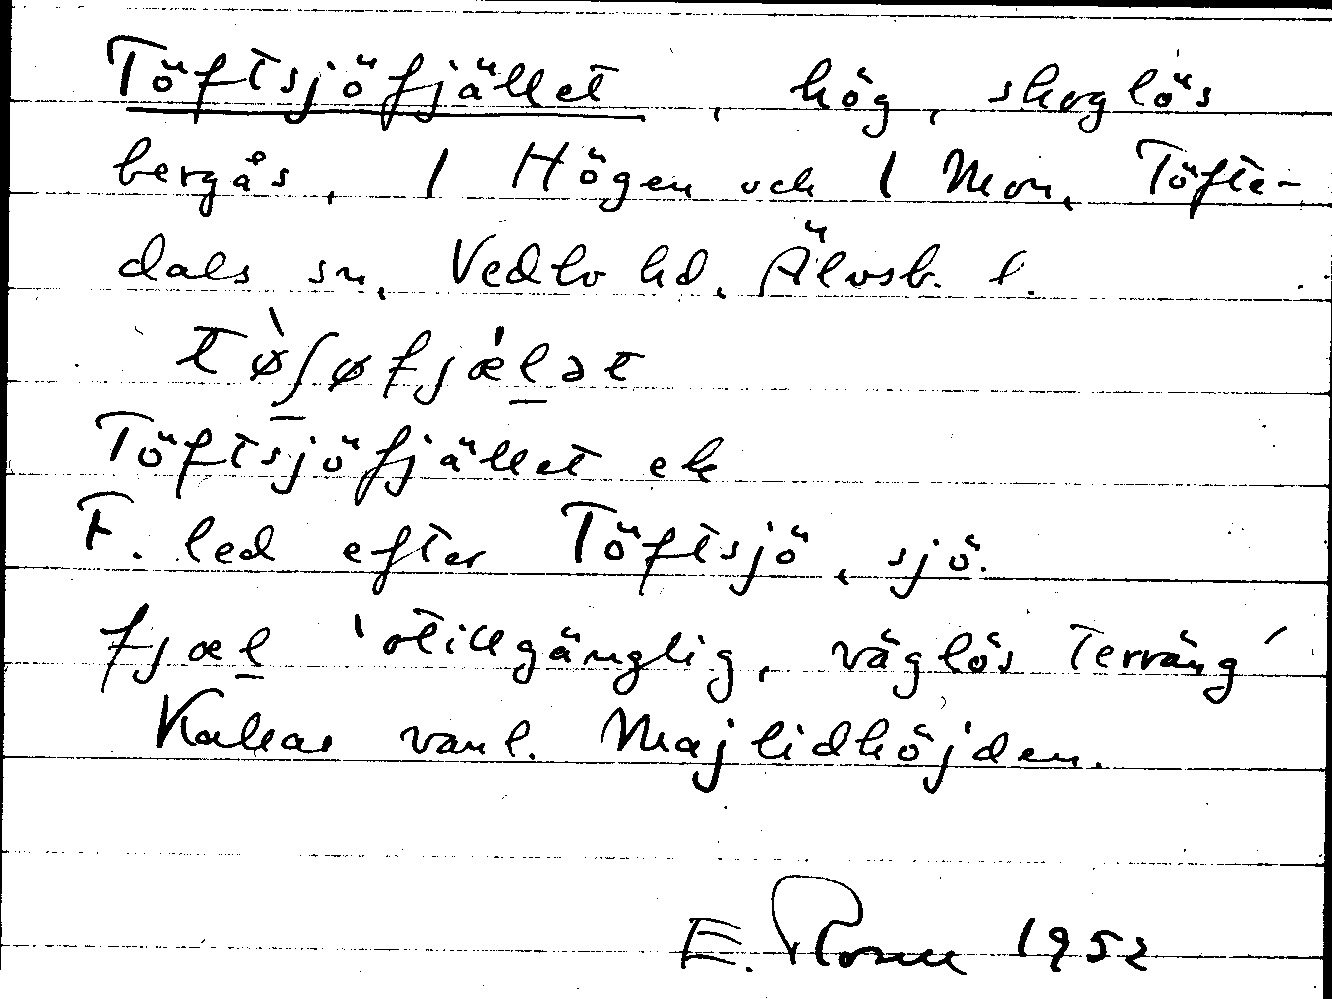 Töftsjöfjället, hög, skoglös
bergås, 1 Högen och 1 Mon, Töfte-
dals sn, Vedbo hd, Älvsb. l.
tø̀ʃøfjæ̍l̠ət
Töftsjöfjället ek
F. led efter Töftsjö, sjö.
fjæl̠ 'otillgänglig, väglös terräng'
Kallas vanl. Majlidhöjden.
E. 1952